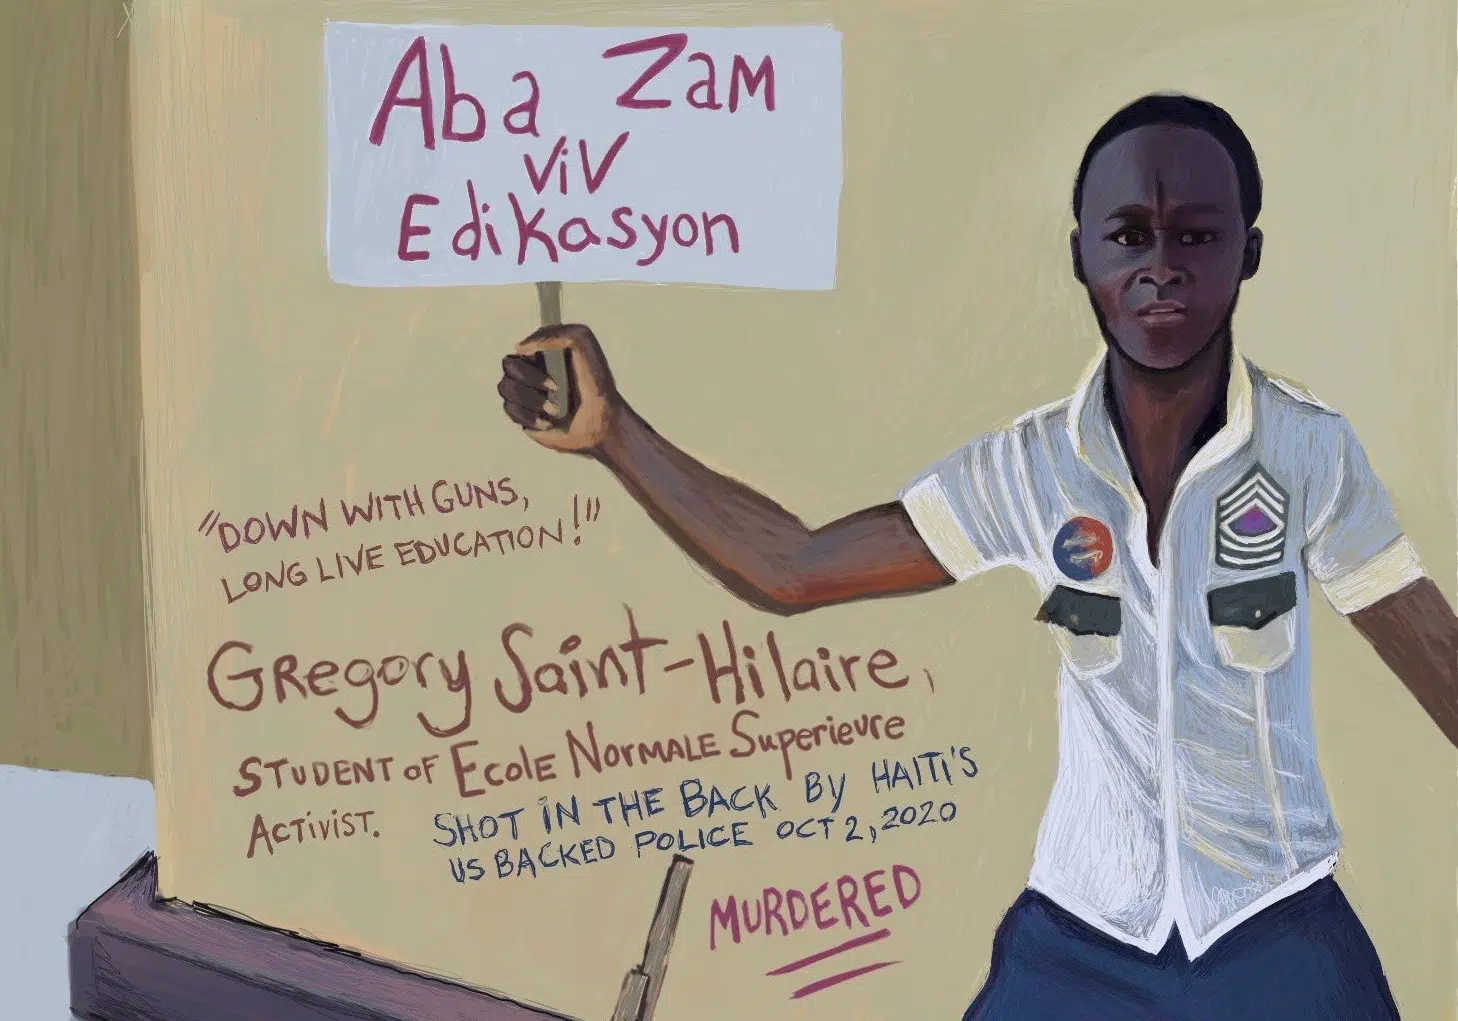 Aba Zam
viv
Edikasyon
"DOWN WITH GUNS,
LONG LIVE EDUCATION!"
Gregory Saint-Hilaire,
STUDENT OF Ecole Normale Superieure
Activist.
SHOT IN THE BACK BY HAITI'S
US BACKED POLICE OCT 2, 2020
MURDERED